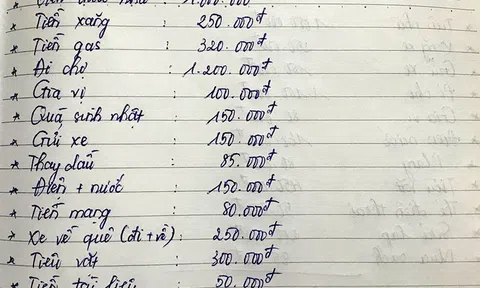 * : 1.000.000
* Tiền xăng : 250.000đ
* Tiền gas : 320.000đ
* Đi chợ : 1.200.000đ
* Gia vị : 100.000đ
* Quà sinh nhật : 150.000đ
* Gửi xe : 150.000đ
* Thay dầu : 85.000đ
* Điện + nước : 150.000đ
* Tiền mạng : 80.000đ
* Xe về quê (đi + về) : 250.000đ
* Tiêu vặt : 300.000đ
* Tiền tài liệu : 50.000đ